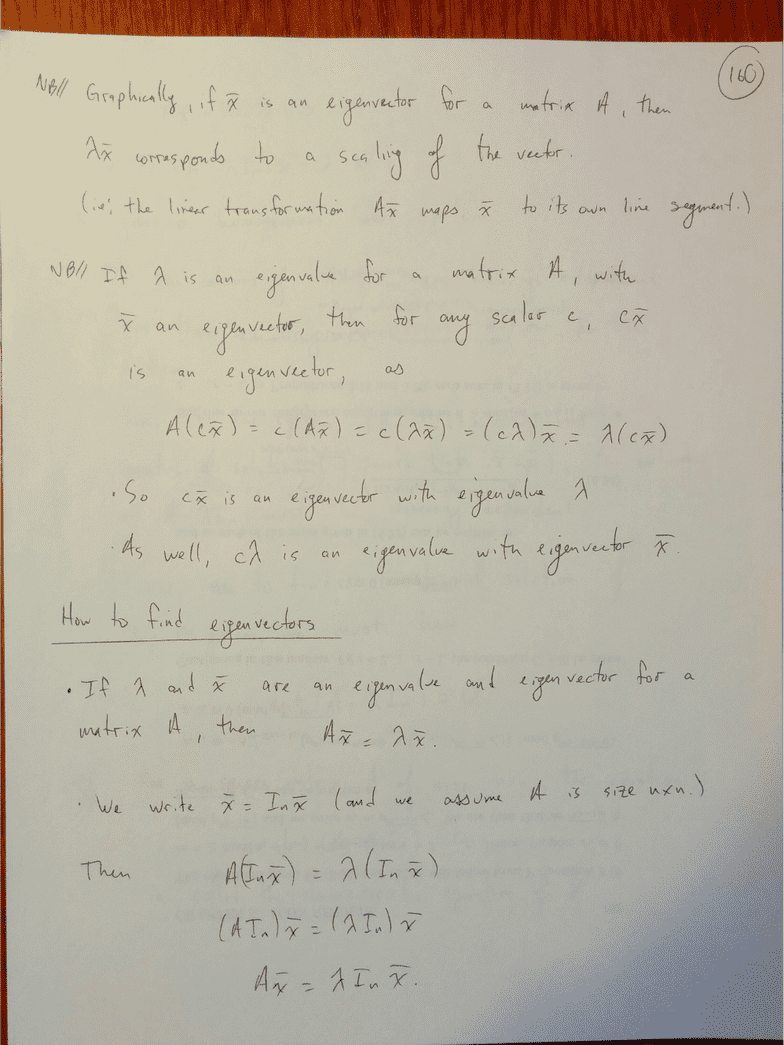 160
NB// Graphically, if x̄ is an eigenvector for a matrix A, then
λx̄ corresponds to a scaling of the vector.
(ie; the linear transformation Ax̄ maps x̄ to its own line segment.)
NB// If λ is an eigenvalue for a matrix A, with
x̄ an eigenvector, then for any scalar c, cx̄
is an eigenvector, as
A(cx̄) = c(Ax̄) = c(λx̄) = (cλ)x̄ = λ(cx̄)
· So cx̄ is an eigenvector with eigenvalue λ
· As well, cλ is an eigenvalue with eigenvector x̄.
How to find eigenvectors
• If λ and x̄ are an eigenvalue and eigenvector for a
matrix A, then Ax̄ = λx̄.
· We write x̄ = Inx̄ (and we assume A is size nxn.)
Then A(Inx̄) = λ(In x̄)
(AIn)x̄ = (λIn)x̄
Ax̄ = λInx̄.